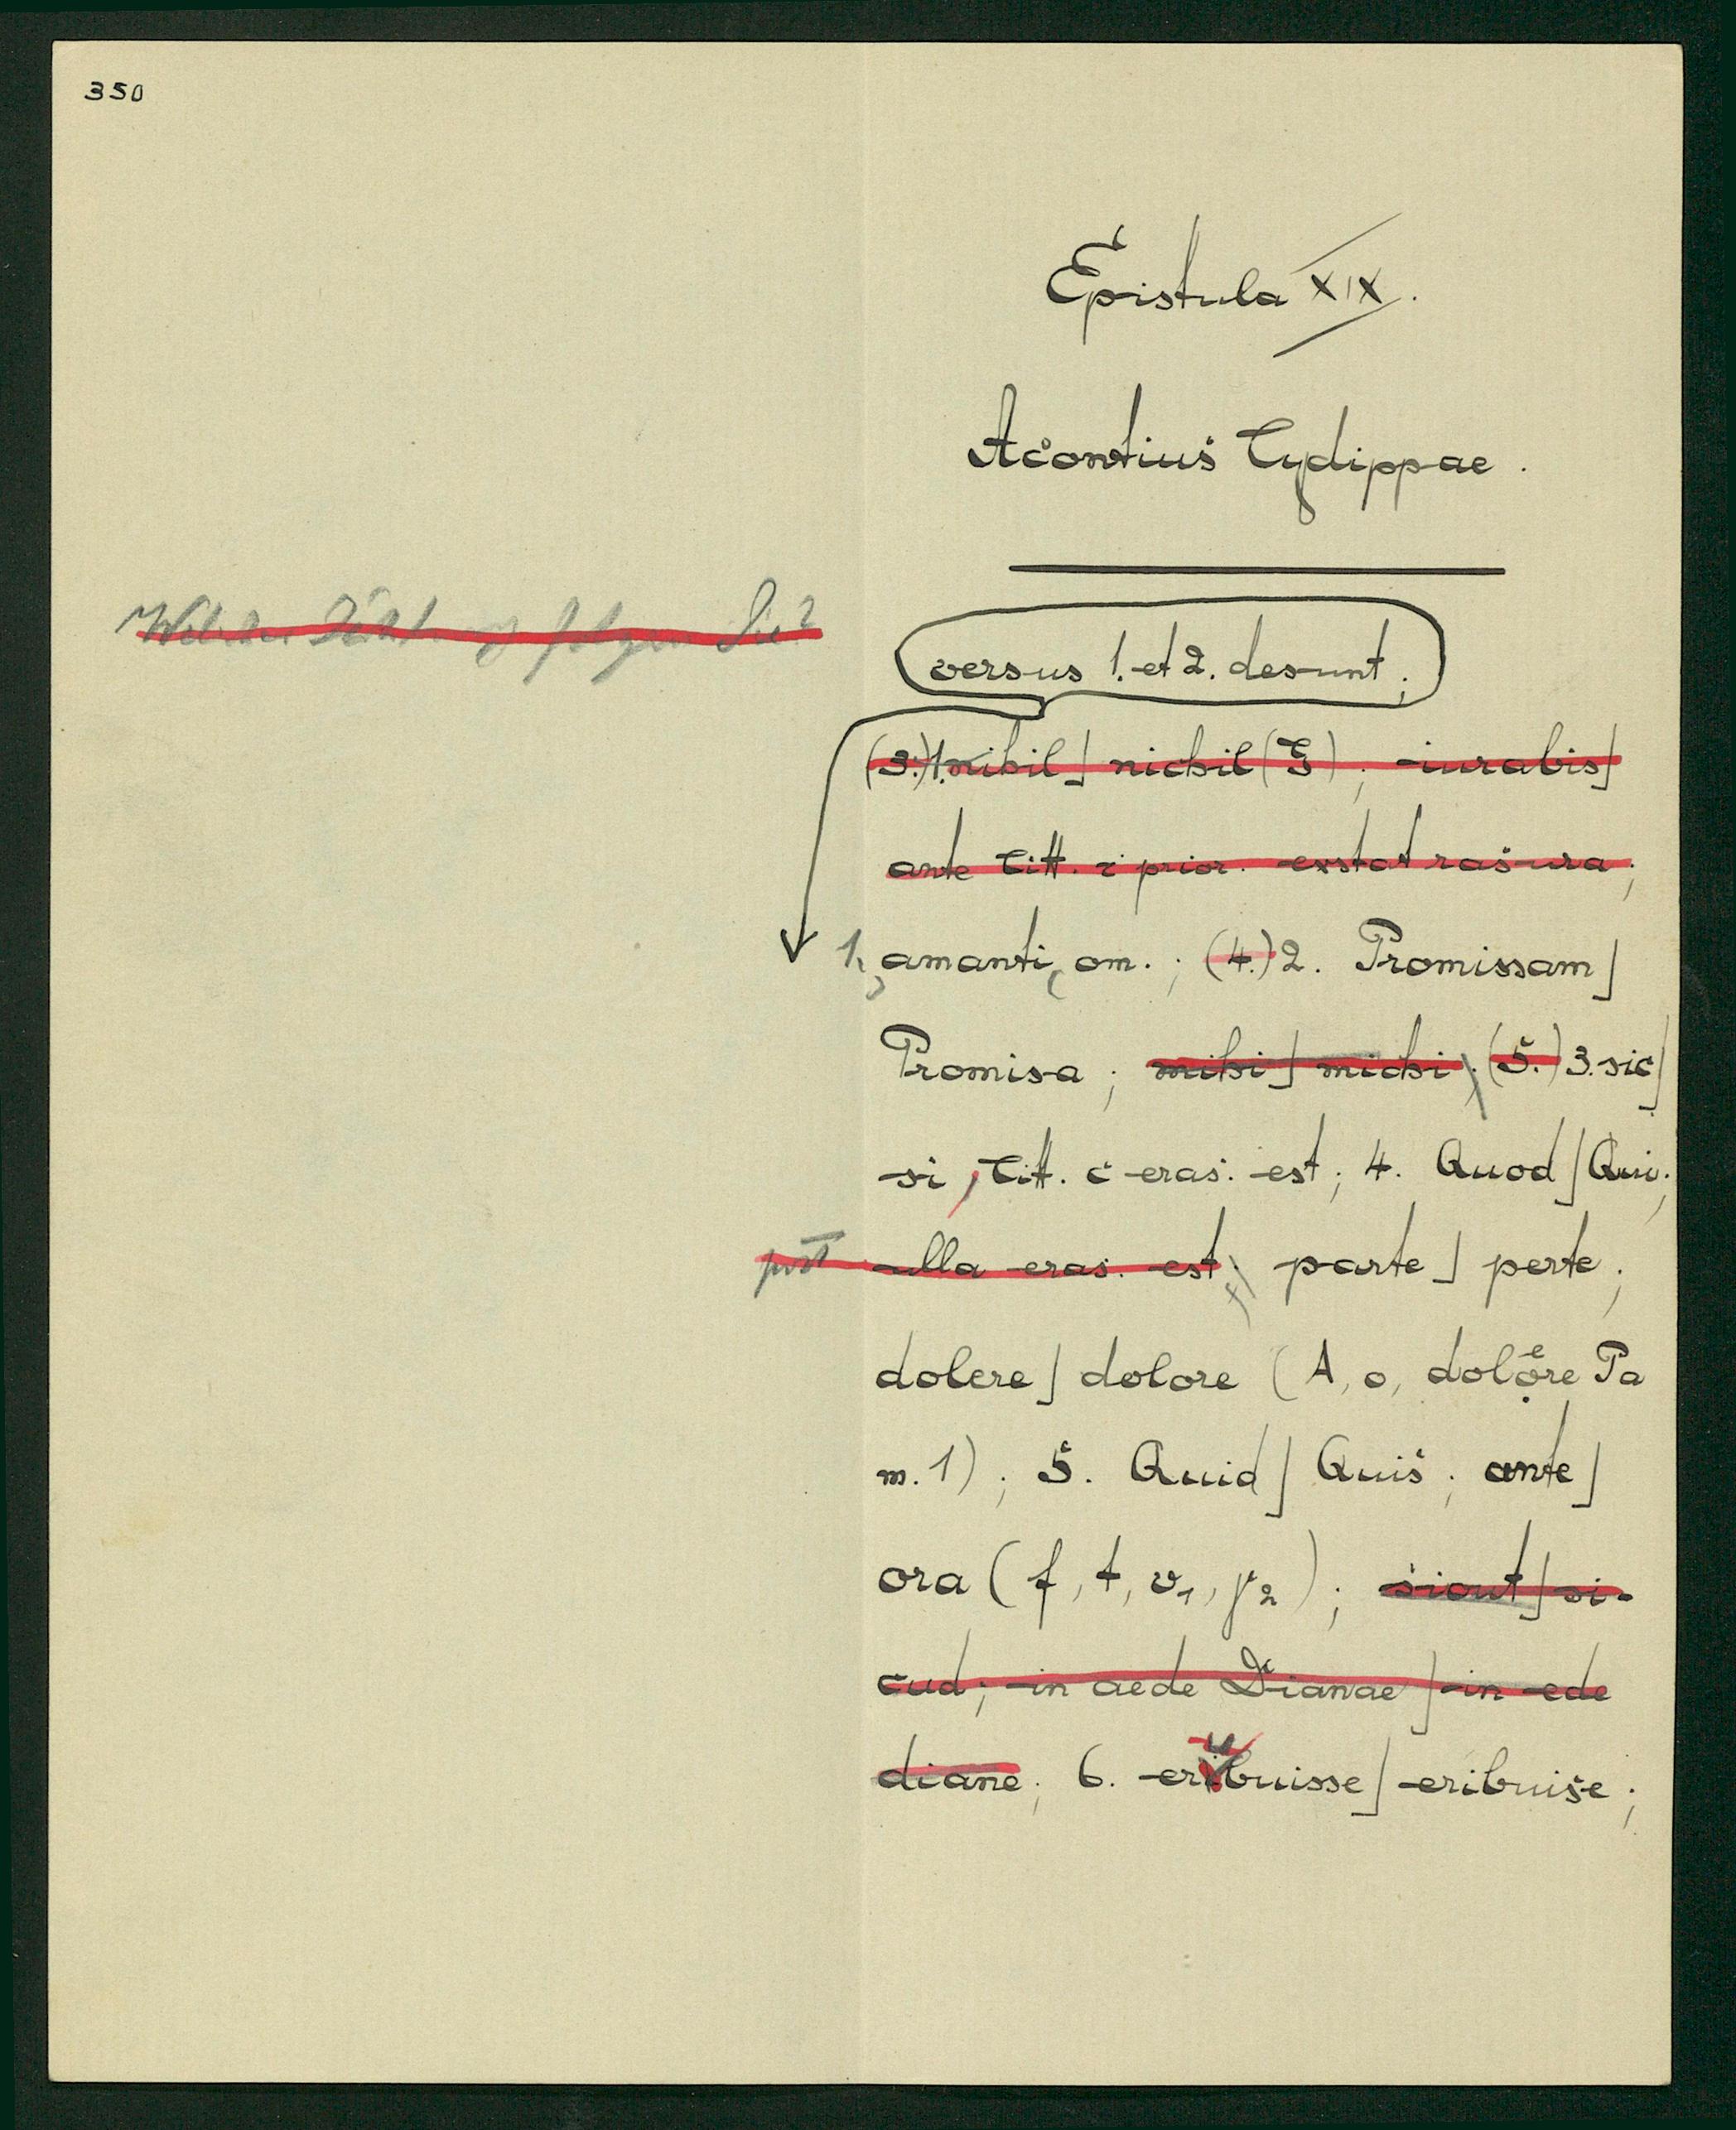 350
Epistula XIX.
Acontius Cydippae.
Welcher Zählung folgen Sie?
versus 1. et 2. desunt;
(3.) 1. nihil] nichil (G); iurabis]
ante litt. i prior. exstat rasura;
1. amanti om.; (4.) 2. Promissam]
Promisa; mihi] michi; (5.) 3. sic]
si, litt. c eras. est; 4. Quod] Qui;
post ulla eras. est; parte] perte;
dolere] dolore (A, o, dolọ̈re Pa
m. 1); 5. Quid] Quis; ante]
ora (f, t, v1, p2); sicut] si-
cud; in aede Dianae] in ede
diane; 6. erubuisse] eribuise;